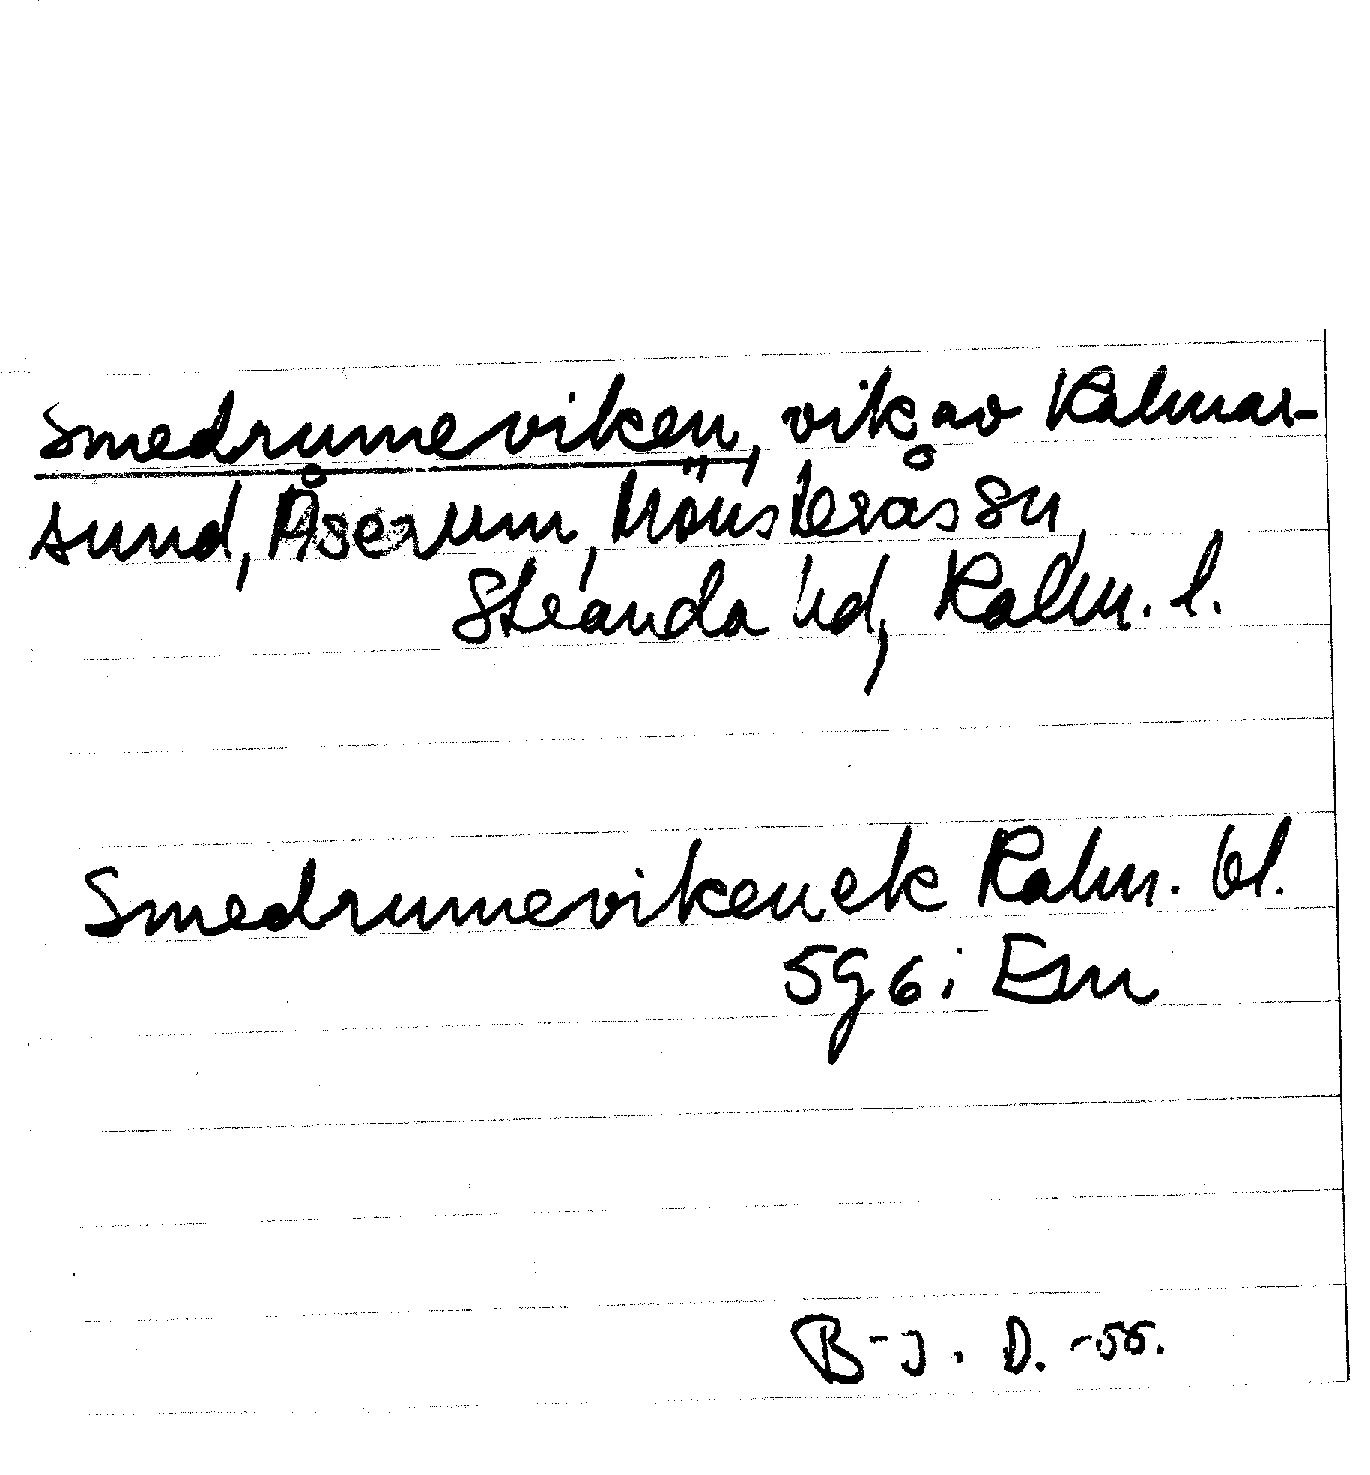 Smedrumeviken, vik av Kalmar-
sund, Åserum, Mönsterås sn,
Stranda hd, Kalm. l.
Smedrumeviken ek Kalm. bl.
5 g 6 i Em
B-J. D. -55.